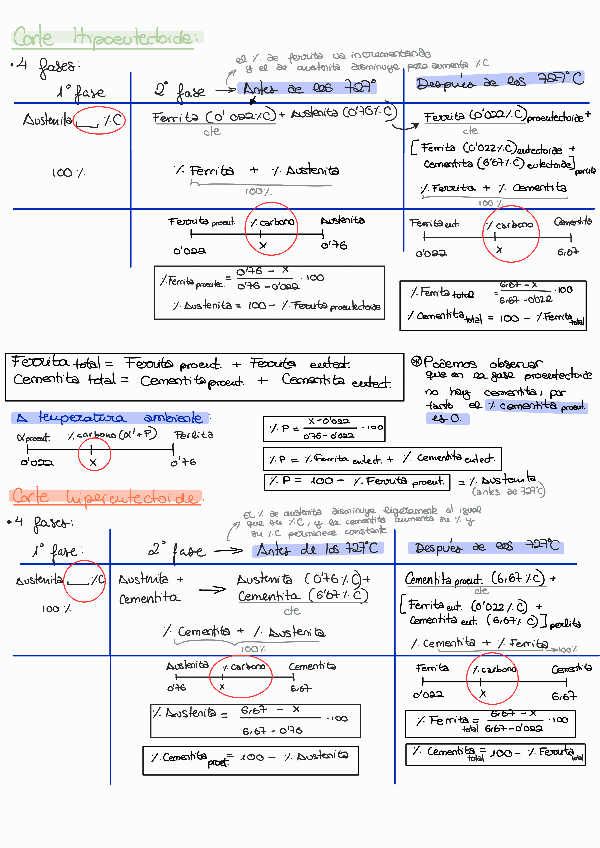 Corte Hipoeutectoide:
• 4 fases:
el % de ferrita va incrementando
y el de austenita disminuye pero aumenta %C
1ª fase
2ª fase → Antes de los 727°
Después de los 727°C
Austenita __ %C
100 %
Ferrita (0'022%C) + Austenita (0'76%C)
cte
% Ferrita + % Austenita
100%
Ferrita (0'022%C) proeutectoide +
cte
[Ferrita (0'022%C) eutectoide +
Cementita (6'67%C) eutectoide] perlita
% Ferrita + % Cementita
100%
Ferrita proeut. % carbono Austenita
0'022 x 0'76
% Ferrita proeutec. = 0'76 - x / 0'76 - 0'022 · 100
% Austenita = 100 - % Ferrita proeutectoide
Ferrita eut. % carbono Cementita
0'022 x 6,67
% Ferrita total = 6,67 - x / 6,67 - 0'022 · 100
% Cementita total = 100 - % Ferrita total
Ferrita total = Ferrita proeut. + Ferrita eutect.
Cementita total = Cementita proeut. + Cementita eutect.
* Podemos observar
que en la fase proeutectoide
no hay cementita, por
tanto el % cementita proeut.
es 0.
A temperatura ambiente:
α proeut. % carbono (α + P) Perlita
0'022 x 0'76
% P = x - 0'022 / 0'76 - 0'022 · 100
% P = % Ferrita eutect. + % Cementita eutect.
% P = 100 - % Ferrita proeut. = % Austenita
(antes de 727°C)
Corte hipereutectoide.
• 4 fases:
el % de austenita disminuye ligeramente al igual
que su %C, y la cementita aumenta su % y
su %C permanece constante
1ª fase:
2ª fase → Antes de los 727°C
Después de los 727°C
Austenita __ %C
100 %
Austenita +
Cementita
→ Austenita (0'76%C) +
Cementita (6'67%C)
cte
% Cementita + % Austenita
100%
Cementita proeut. (6,67%C) +
cte
[Ferrita eut. (0'022%C) +
Cementita eut. (6,67%C)] perlita
% Cementita + % Ferrita → 100%
Austenita % carbono Cementita
0'76 x 6,67
% Austenita = 6,67 - x / 6,67 - 0'76 · 100
% Cementita proet = 100 - % Austenita
Ferrita % carbono Cementita
0'022 x 6,67
% Ferrita total = 6,67 - x / 6,67 - 0'022 · 100
% Cementita total = 100 - % Ferrita total